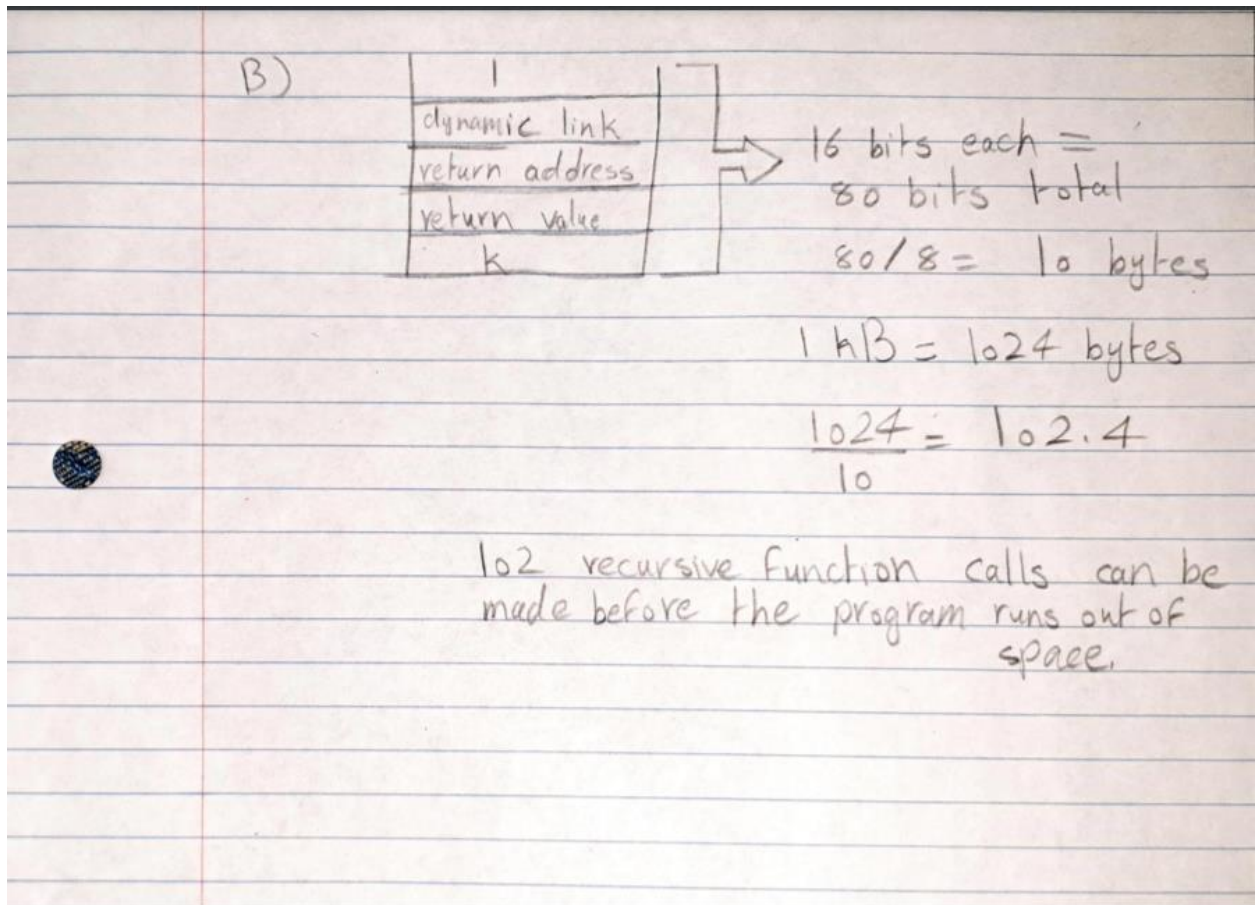 B)
l
dynamic link
return address
return value
k
16 bits each =
80 bits total
80/8 = 10 bytes
1 kB = 1024 bytes
1024 = 102.4
10
102 recursive function calls can be
made before the program runs out of
space.